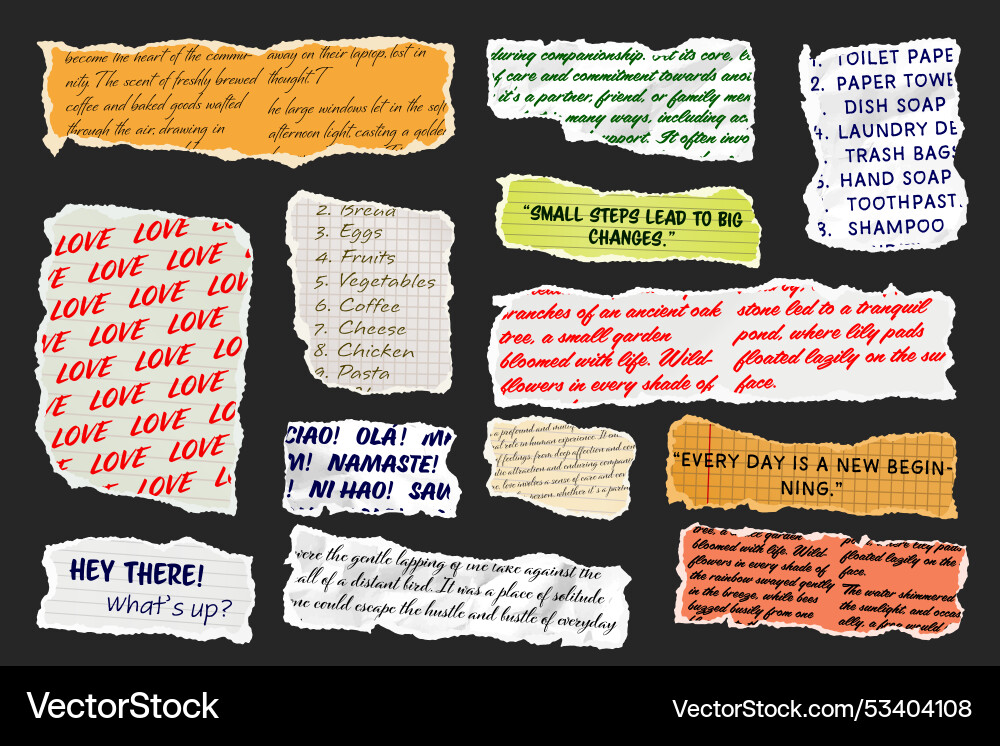 become the heart of the commu-
nity. The scent of freshly brewed
coffee and baked goods wafted
through the air, drawing in
away on their laptop, lost in
thought. T
he large windows let in the
afternoon light, casting a golde
during companionship. its core,
of care and commitment towards
it's a partner, friend, or family
many ways, including
It often invo
1. TOILET PAPE
2. PAPER TOWE
DISH SOAP
4. LAUNDRY DE
TRASH BAGS
HAND SOAP
TOOTHPAST.
8. SHAMPOO
"SMALL STEPS LEAD TO BIG
CHANGES."
LOVE LOVE
LOVE LOVE
LOVE LOVE LOV
LOVE LOVE
LOVE LOVE LO
LOVE LOVE
LOVE LOVE LO
LOVE LOVE
LOVE LOVE
LOVE
2. Bread
3. Eggs
4. Fruits
5. Vegetables
6. Coffee
7. Cheese
8. Chicken
9. Pasta
branches of an ancient oak
tree, a small garden
bloomed with life. Wild-
flowers in every shade of
stone led to a tranquil
pond, where lily pads
floated lazily on the sur
face.
CIAO! OLÁ!
M! NAMASTE!
! NI HAO! SAW
a profound and
role in human experience. It
of feelings, from deep affection and
attraction and enduring
love involves a sense of care and
person, whether it's a
"EVERY DAY IS A NEW BEGIN-
NING."
HEY THERE!
What's up?
were the gentle lapping of the lake against the
all of a distant bird. It was a place of solitude
one could escape the hustle and bustle of everyday
tree, a garden
bloomed with life. Wild
flowers in every shade of
the rainbow swayed gently
in the breeze, while bees
buzzed busily from one
where lily pads
floated lazily on the
face.
The water shimmered
the sunlight, and occas
ally, a frog would
VectorStock
VectorStock.com/53404108